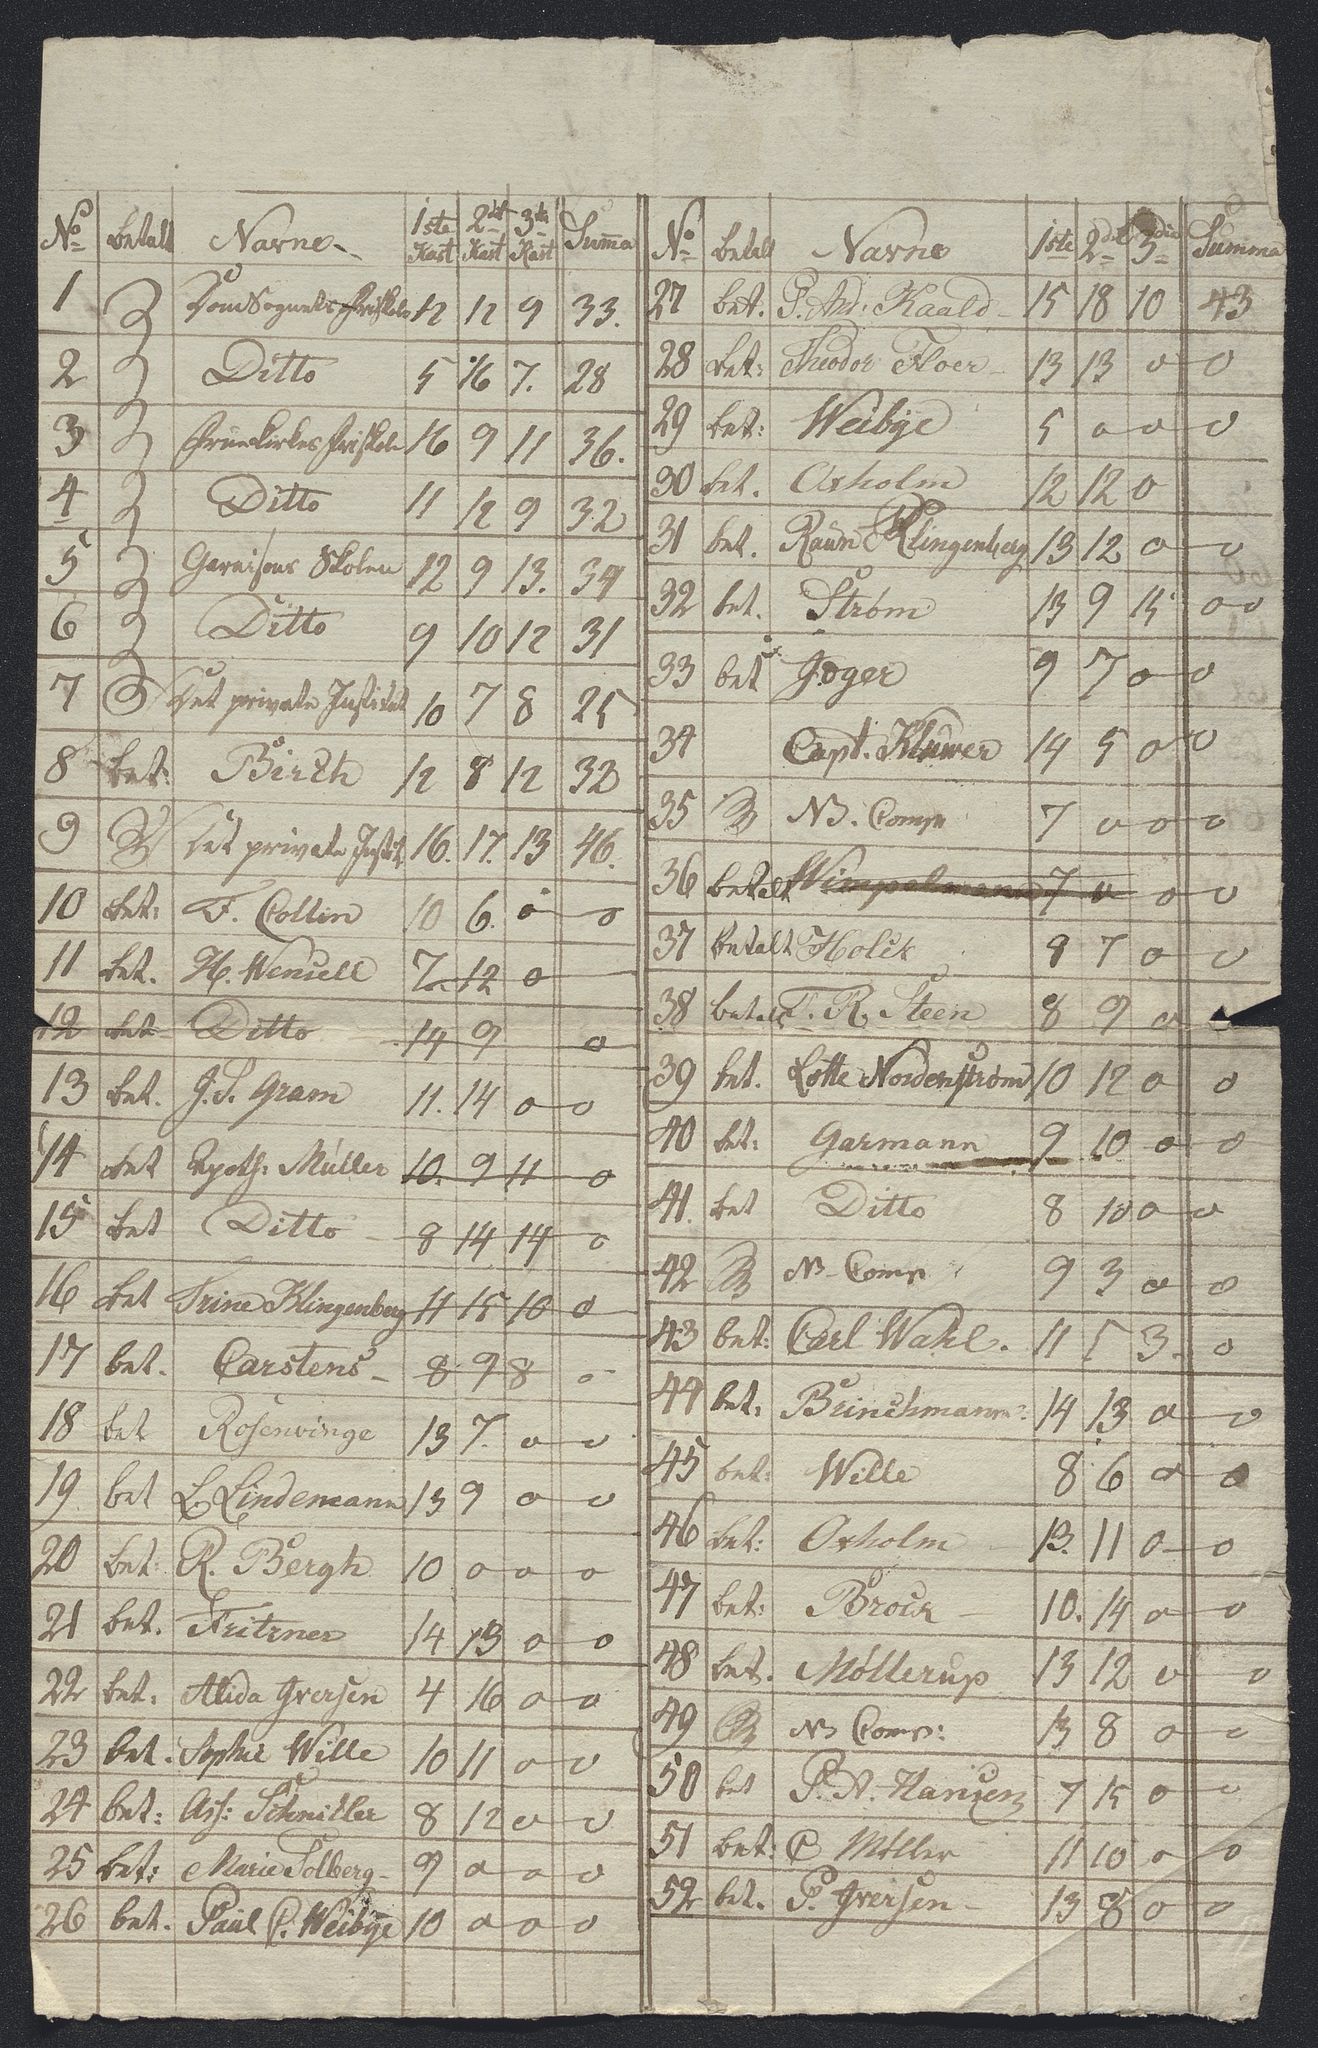 No betalt Navne 1ste Kast 2det Kast 3die Kast Summa
1 DomSognets Friskole 12 12 9 33.
2 Ditto 5 16 7. 28
3 Fruekirkes Friskole 16 9 11 36.
4 Ditto 11 12 9 32
5 Garnisons Skolen 12 9 13. 34
6 Ditto 9 10 12 31
7 Det private Institut 10 7 8 25
8 bet: Birch 12 8 12 32
9 Det private Instit. 16. 17. 13 46.
10 bet: F. Collin 10 6. 0 0
11 bet. H. Wensell 7. 12 0
12 bet Ditto 14 9 0
13 bet. J. S. Gram 11. 14 0 0
14 bet Apoth: Müller 10. 9 11 0
15 bet Ditto 8 14 14 0
16 bet Trine Klingenberg 11 15 10 0
17 bet. Carstens 8 9 8 0
18 bet Rosenvinge 13 7. 0 0
19 bet L. Lindemann 13 9 0 0
20 bet: R. Bergh 10 0 0 0
21 bet. Fritzner 14 13 0 0
22 bet. Alida Iversen 4 16 0 0
23 bet. Sophie Wille 10 11 0 0
24 bet: Ass: Schnitler 8 12 0 0
25 bet: Marie Solberg 9 0 0 0
26 bet. Paul C. Weibye 10 0 0 0
No betalt Navne 1ste 2det 3die Summa
27 bet. P. And: Kaald 15 18 10 43
28 bet: Theodor Floer 13 13 0 0
29 bet: Weibye 5 0 0 0
30 bet. Oxholm 12 12 0
31 bet. Klingenberg 13 12 0 0
32 bet. Strøm 13 9 15 0 0
33 bet Jæger 9 7 0 0
34 Capt. Klüwer 14 5 0 0
35 NB. Comp 7 0 0 0
36 betalt Wimpelmann 7 0 0 0
37 betalt Holck 8 7 0 0
38 betalt F. R. Steen 8 9 0 0
39 bet. Lotte Nordenstrøm 10 12 0 0
40 bet: Garmann 9 10 0 0
41. bet Ditto 8 10 0 0
42 NB Comp 9 3 0 0
43 bet: Carl Wahl. 11 5 3. 0
44 bet: Brinchmann 14 13 0 0
45 bet: Wille 8 6 0 0
46 bet: Oxholm 13. 11 0 0
47 bet: Brock 10. 14 0 0
48 bet. Møllerup 13 12 0 0
49 NB Comp: 13 8 0 0
50 bet P. A. Hansen 7 15 0 0
51 bet: C Möller 11 10 0 0
52 bet. P. Iversen 13 8 0 0